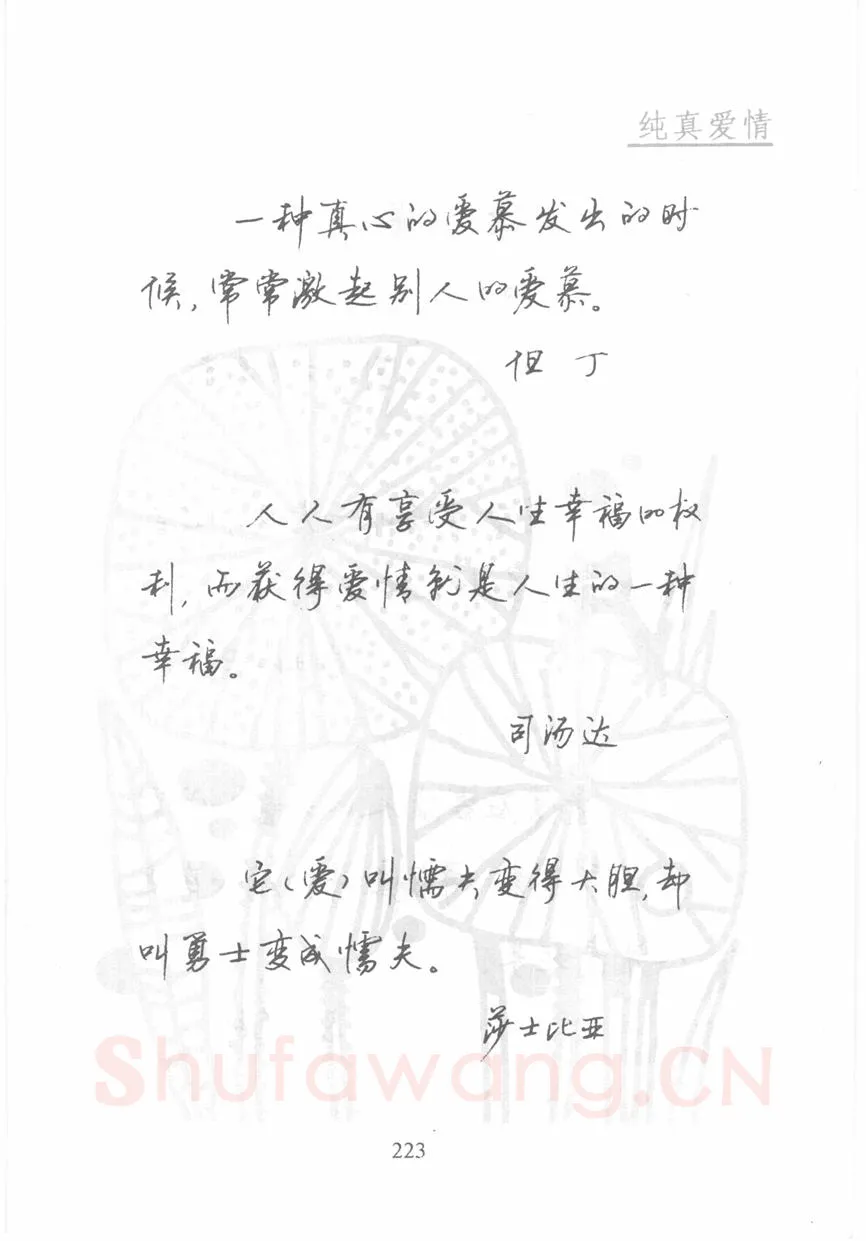 纯真爱情
一种真心的爱慕发出的时
候,常常激起别人的爱慕。
但 丁
人人有享受人生幸福的权
利,而获得爱情就是人生的一种
幸福。
司汤达
它(爱)叫懦夫变得大胆,却
叫勇士变成懦夫。
莎士比亚
Shufawang.CN
223